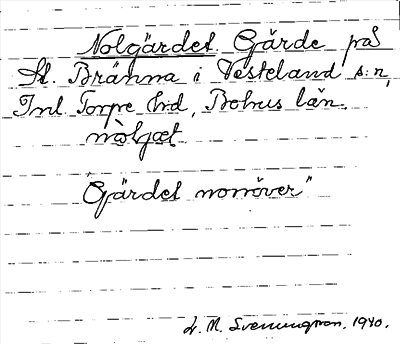 Nolgärdet. Gärde på
St. Bränna i Vesteland s:n,
Inl. Torpe hd, Bohus län.
nòljæt
"Gärdet norröver"
L. M. Svenungsson. 1940.